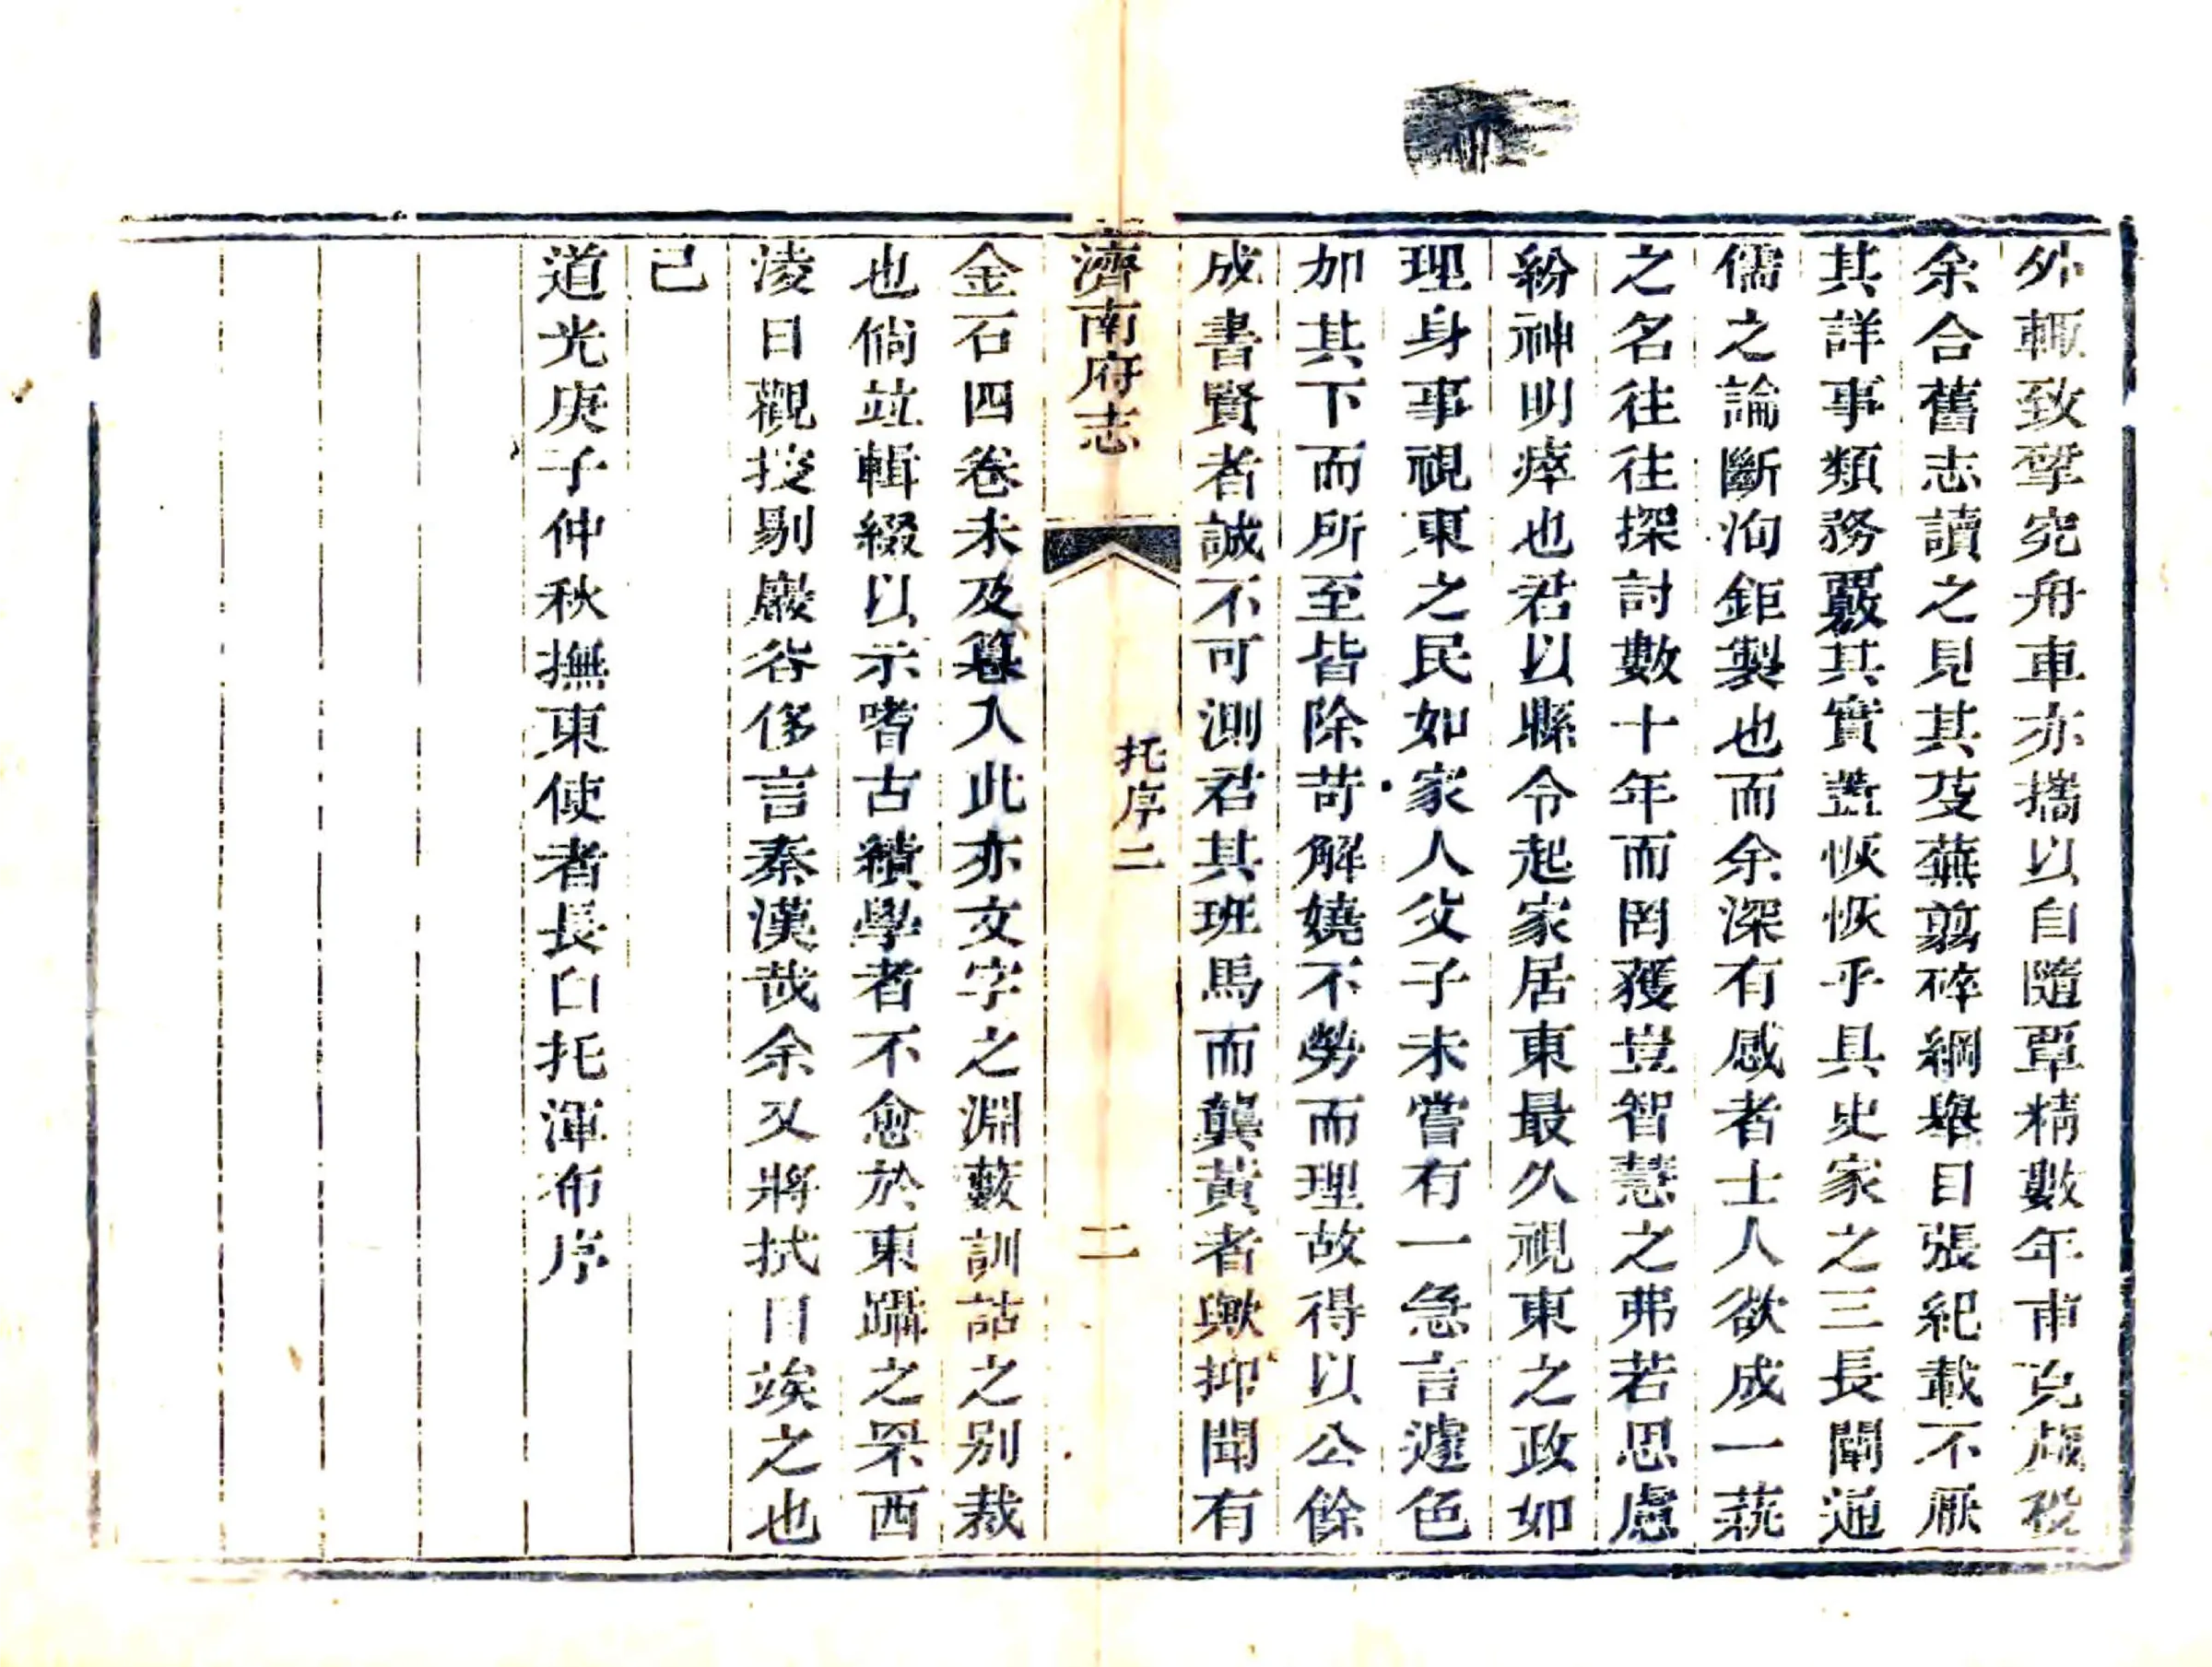 外輒致揅究舟車亦攜以自隨覃精數年甫克蕆役
余合舊志讀之見其芟蕪翦碎綱舉目張紀載不厭
其詳事類務覈其實葢恢恢乎具史家之三長闡通
儒之論斷洵鉅製也而余深有感者士人欲成一蓺
之名往往探討數十年而罔獲豈智慧之弗若思慮
紛神明瘁也君以縣令起家居東最久視東之政如
理身事視東之民如家人父子未嘗有一急言遽色
加其下而所至皆除苛解嬈不勞而理故得以公餘
成書賢者誠不可測君其班馬而龔黃者歟抑聞有
濟南府志
托序二
二
金石四卷未及纂入此亦文字之淵藪訓詁之别裁
也倘竝輯綴以示嗜古積學者不愈於東躡之罘西
淩日觀披剔巖谷侈言秦漢哉余又將拭目竢之也
已
道光庚子仲秋撫東使者長白托渾布序